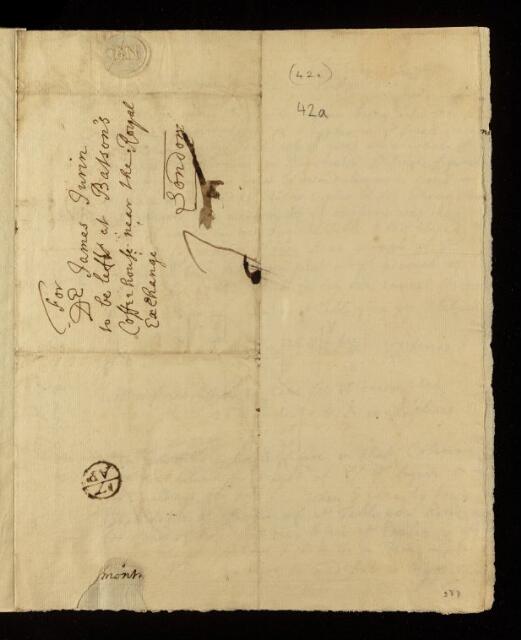 (42.)
42a
For
Dr James Jurin
to be left at Batson's
Coffee house near the Royal
Exchange
London
7
mont